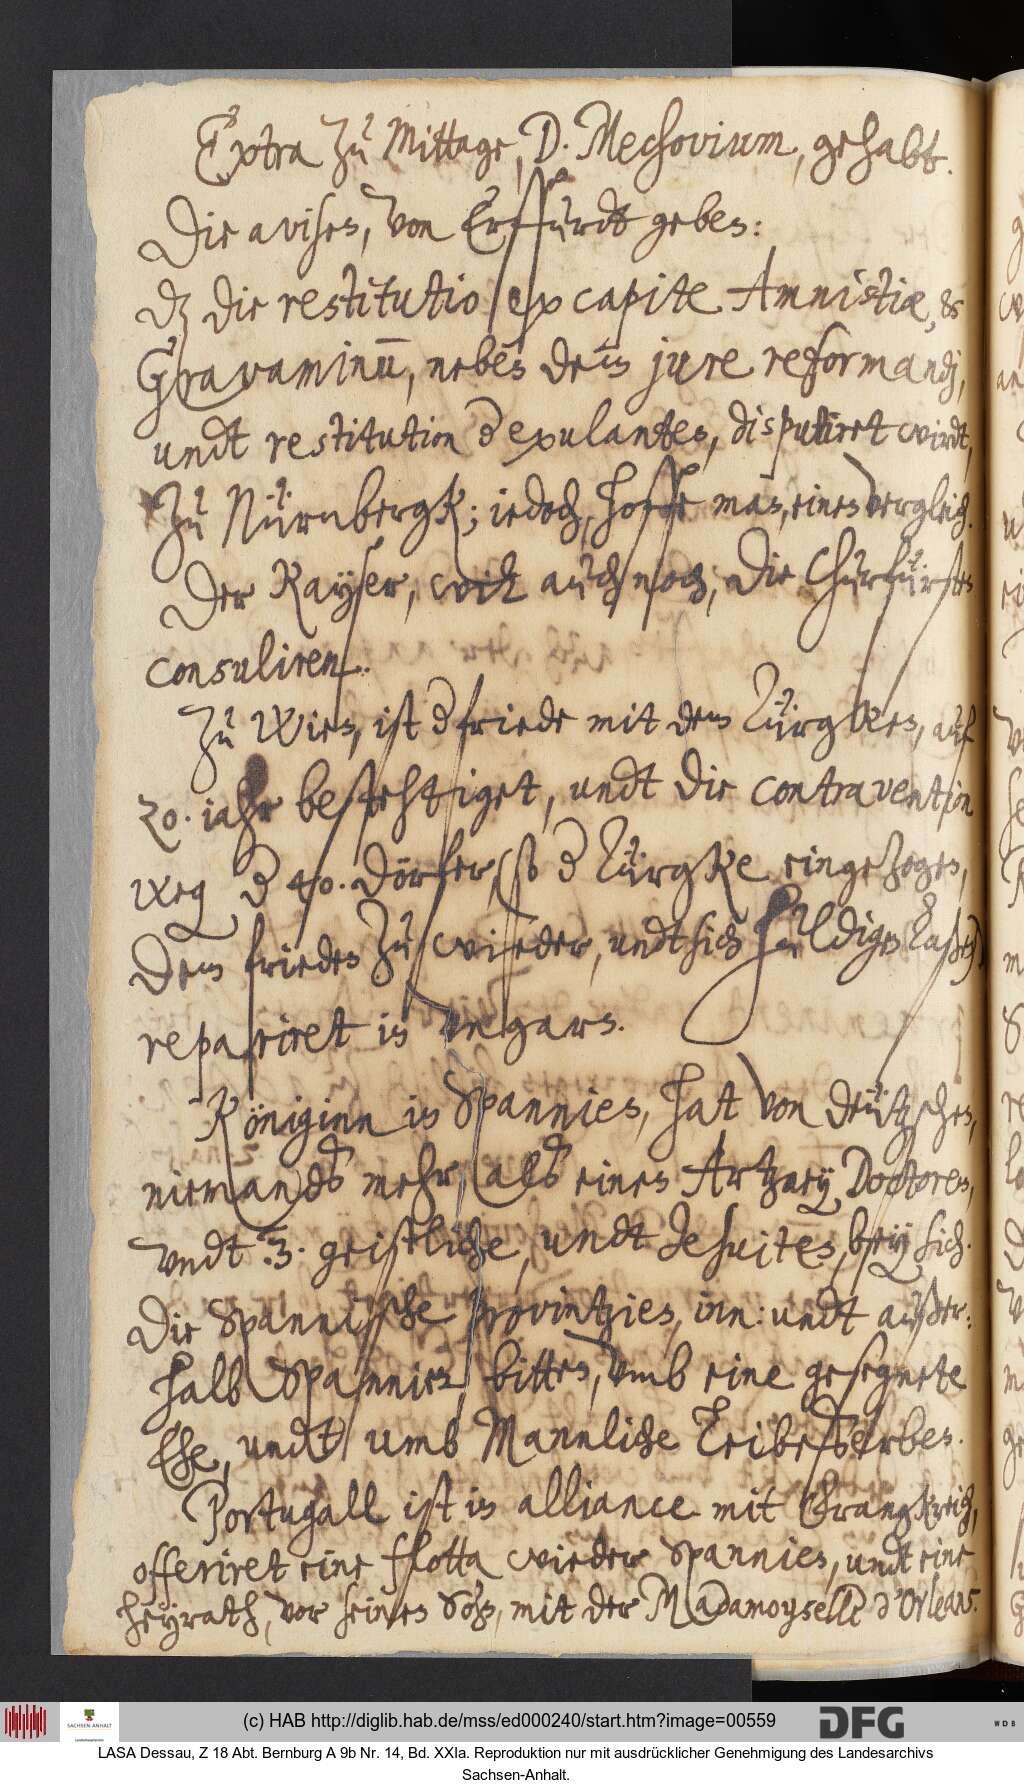 Extra zu Mittage, D. Mechovium, gehabt.
Die avisen, von Erffurdt geben:
dz die restitutio ex capite Amnistiæ, &
Gravaminū, neben dem jure reformandj,
undt restitution d exulanten, disputiret wirdt,
zu Nürnbergk; iedoch, hoffe man, einen vergleich.
Der Kayser, will auch noch, die Churfürsten
consuliren.
Zu Wien, ist d friede mit dem Türgken, auf
20. iahr bestehtiget, undt die contravention
weg d 40. dörfer, (so d Türgke eingezogen,
dem frieden zu wieder, undt sich huldigen laßen)
repariret in Ungarn.
Königinn in Spannien, hat von deützschen,
niemands mehr, als einen Artzney Doctoren,
undt 3. geistliche, undt Jesuiten, bey sich.
Die Spannische provintzien, inn: undt außer:
halb Spannien bitten, umb eine gesegnete
Ehe, undt umb Mannliche LeibesErben.
Portugall ist in alliance mit Frangkreich,
offeriret eine flotta wieder Spannien, undt eine
heyrath, vor seinen Sohn, mit der Madamoyselle d'Orleans.
(c) HAB http://diglib.hab.de/mss/ed000240/start.htm?image=00559
SACHSEN-ANHALT
DFG
WDB
LASA Dessau, Z 18 Abt. Bernburg A 9b Nr. 14, Bd. XXIa. Reproduktion nur mit ausdrücklicher Genehmigung des Landesarchivs
Sachsen-Anhalt.